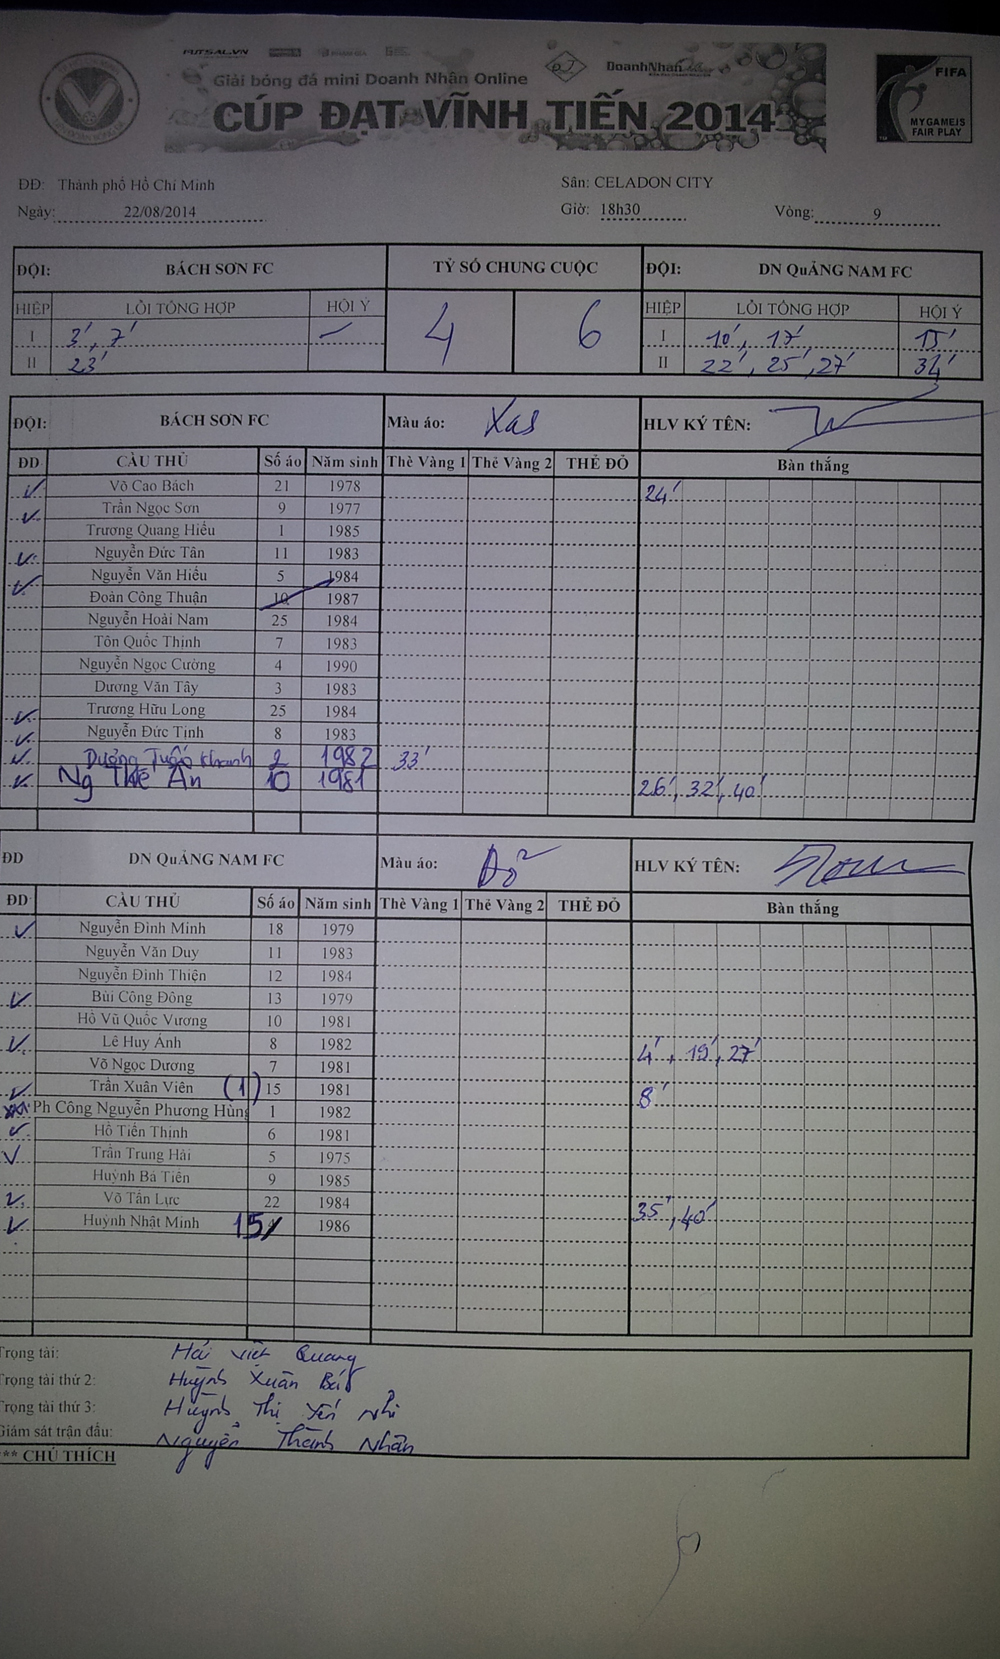 FUTSAL.VN
Giải bóng đá mini Doanh Nhân Online
DoanhNhân
CÚP ĐẠT VĨNH TIẾN 2014
FIFA
MY GAME IS
FAIR PLAY
ĐĐ: Thành phố Hồ Chí Minh Sân: CELADON CITY
Ngày: 22/08/2014 Giờ: 18h30 Vòng: 9
ĐỘI: BÁCH SƠN FC TỶ SỐ CHUNG CUỘC ĐỘI: DN QuẢNG NAM FC
HIỆP LỖI TỔNG HỢP HỘI Ý 4 6 HIỆP LỖI TỔNG HỢP HỘI Ý
I 3', 7' - I 10', 17' 15'
II 23' II 22', 25', 27' 34'
ĐỘI: BÁCH SƠN FC Màu áo: HLV KÝ TÊN:
ĐD CẦU THỦ Số áo Năm sinh Thẻ Vàng 1 Thẻ Vàng 2 THẺ ĐỎ Bàn thắng
Võ Cao Bách 21 1978 24'
Trần Ngọc Sơn 9 1977
Trương Quang Hiếu 1 1985
Nguyễn Đức Tân 11 1983
Nguyễn Văn Hiếu 5 1984
Đoàn Công Thuận 10 1987
Nguyễn Hoài Nam 25 1984
Tôn Quốc Thịnh 7 1983
Nguyễn Ngọc Cường 4 1990
Dương Văn Tây 3 1983
Trương Hữu Long 25 1984
Nguyễn Đức Tịnh 8 1983
Dương Tuấn Khanh 2 1982 33'
Ng Thế Ân 10 1981 26', 32', 40'
ĐD DN QuẢNG NAM FC Màu áo: Đỏ HLV KÝ TÊN:
ĐD CẦU THỦ Số áo Năm sinh Thẻ Vàng 1 Thẻ Vàng 2 THẺ ĐỎ Bàn thắng
Nguyễn Đình Minh 18 1979
Nguyễn Văn Duy 11 1983
Nguyễn Đình Thiện 12 1984
Bùi Công Đông 13 1979
Hồ Vũ Quốc Vương 10 1981
Lê Huy Ánh 8 1982 4', 19', 27'
Võ Ngọc Dương 7 1981
Trần Xuân Viên (1) 15 1981 8'
Ph Công Nguyễn Phương Hùng 1 1982
Hồ Tiến Thịnh 6 1981
Trần Trung Hải 5 1975
Huỳnh Bá Tiên 9 1985
Võ Tấn Lực 22 1984 35', 40'
Huỳnh Nhật Minh 15 1986
Trọng tài: Việt Quang
Trọng tài thứ 2: Huỳnh Xuân
Trọng tài thứ 3: Huỳnh Thị Yến Nhi
Giám sát trận đấu: Nguyễn Thành Nhân
** CHÚ THÍCH